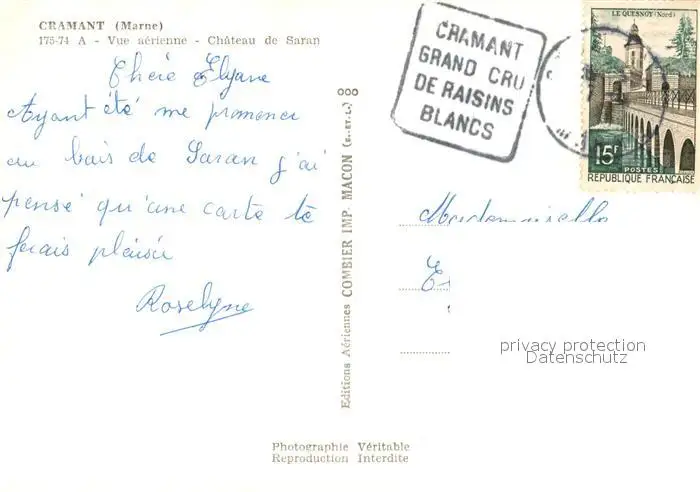 CRAMANT (Marne)
175-74 A - Vue aérienne - Château de Saran
Chère Elyane
Ayant été me promener
au bois de Saran j'ai
pensé qu'une carte te
ferais plaisir
Roselyne
Editions Aériennes COMBIER IMP. MACON (S.-ET-L.)
CRAMANT
GRAND CRU
DE RAISINS
BLANCS
LE QUESNOY (Nord)
15F
POSTES
REPUBLIQUE FRANÇAISE
Mademoiselle
privacy protection
Datenschutz
Photographie Véritable
Reproduction Interdite